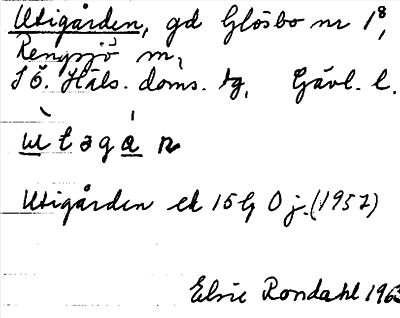 Utigården, gd Glösbo nr 1⁸,
Rengsjö sn,
SÖ. Häls. doms. tg, Gävl. l.
ùtəgán
Utigården ek 15 G O j. (1957)
Elsie Rondahl 1963